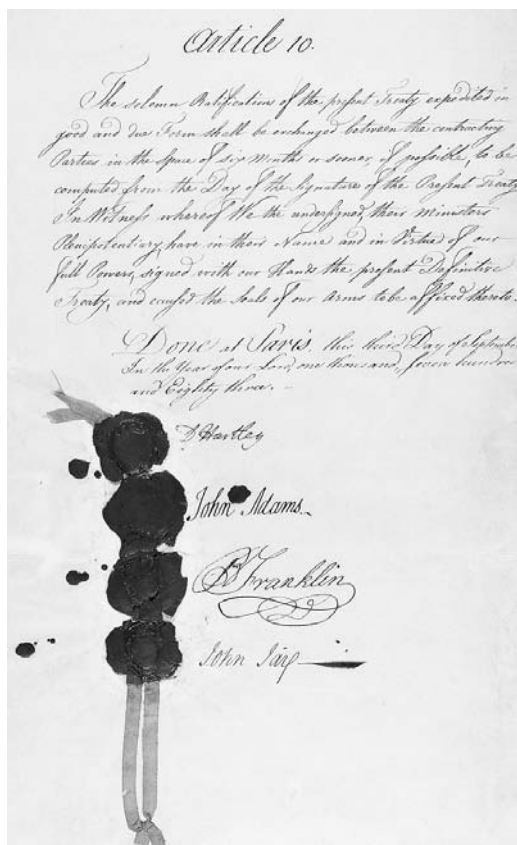 Article 10.
The solemn Ratifications of the present Treaty expedited in
good and due Form shall be exchanged between the contracting
Parties in the Space of six Months or sooner, if possible, to be
computed from the Day of the Signature of the Present Treaty
In Witness whereof We the undersigned, their Ministers
Plenipotentiary, have in their Name and in Virtue of our
full Powers, signed with our Hands the present Definitive
Treaty, and caused the Seals of our Arms to be affixed thereto.
Done at Paris. this third Day of September
In the Year of our Lord, one thousand, seven hundred
and Eighty three. -
D Hartley
John Adams.
B Franklin
John Jay